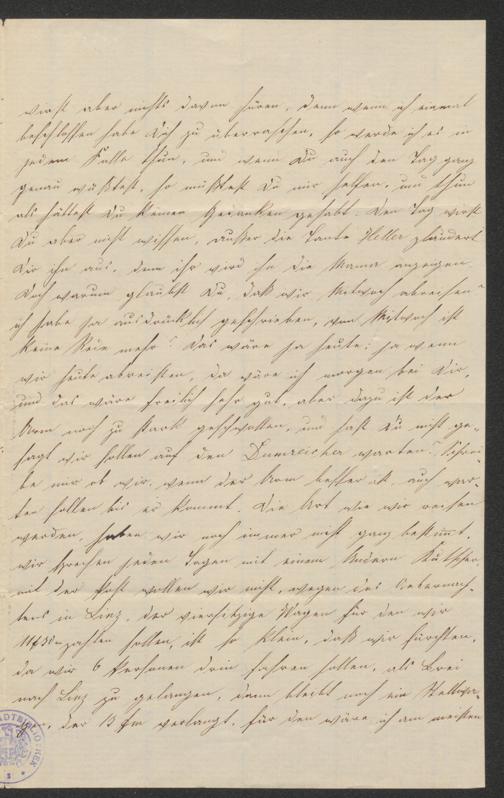 wirst aber nichts davon hören, denn wenn ich einmal
beschlossen habe Dich zu überraschen, so werde ich es in
jedem Falle thun, und wenn Du auch den Tag ganz
genau wüßtest, so müßtest Du mir helfen, und thun
als hättest Du keinen Gedanken gehabt. Den Tag wirst
Du aber nicht wissen, außer die Tante Heller plaudert
Dir ihn aus, denn ihr wird ja die Mama anzeigen.
Doch warum glaubst Du, daß wir Mittwoch abreisen?
ich habe ja ausdrücklich geschrieben, von Mittwoch ist
keine Rede mehr! Das wäre ja heute; ja wenn
wir heute abreisten, da wäre ich morgen bei Dir,
und das wäre freilich sehr gut, aber dazu ist der
Arm noch zu stark geschwollen, und hast Du nicht ge-
sagt wir sollen auf den Dumreicher warten? Schrei-
be mir ob wir, wenn der Arm besser ist, auch war-
ten sollen bis er kommt. Die Art wie wir reisen
werden, haben wir noch immer nicht ganz bestimmt,
wir sprechen jeden Tagen mit einem Andern Kutscher,
mit der Post wollen wir nicht, wegen des Uebernach-
tens in Linz. Der viersitzige Wagen für den wir
11 f 30 zahlen sollen, ist so klein, daß wir fürchten,
da wir 6 Personen drin fahren sollen, als Brei
nach Linz zu gelangen, dann bleibt noch ein Stellwa-
gen, der 13 fm verlangt, für den wäre ich am meisten
STADTBIBLIOTHEK